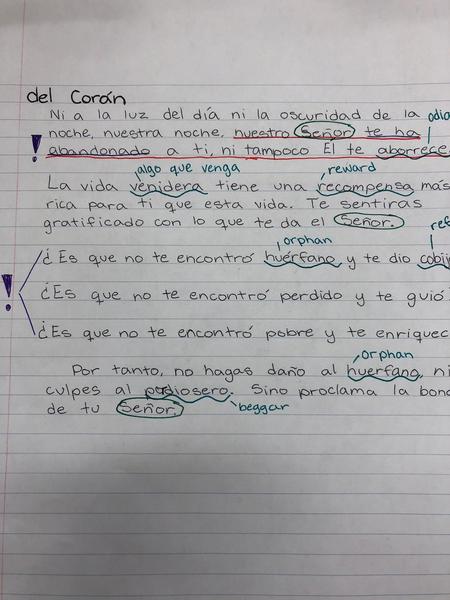 del Corán
Ni a la luz del día ni la oscuridad de la odio
noche, nuestra noche, nuestro Señor te ha
! abandonado a ti, ni tampoco El te aborrece
algo que venga reward
La vida venidera tiene una recompensa más
rica para ti que esta vida. Te sentiras
gratificado con lo que te da el Señor.
orphan ref
¿Es que no te encontró huérfano y te dio cobij
! ¿Es que no te encontró perdido y te guió
¿Es que no te encontró pobre y te enriquec
orphan
Por tanto, no hagas daño al huerfano, ni
culpes al pordiosero. Sino proclama la bond
de tu Señor. beggar